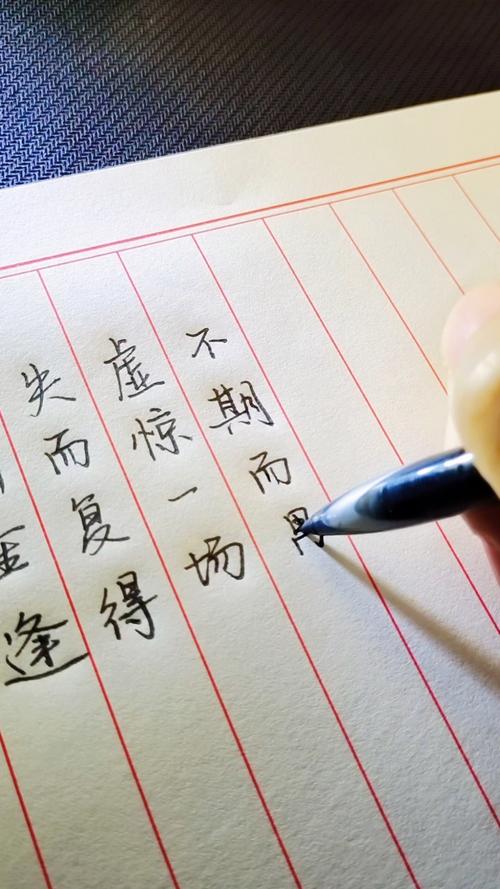 逢
失而复得
虚惊一场
不期而